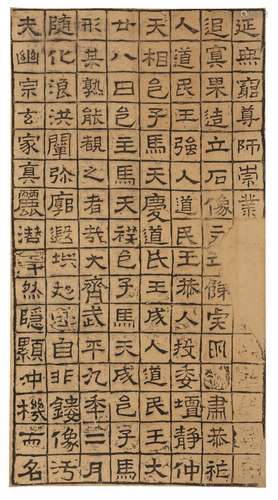 夫幽宗玄家真麗潜然隱顯沖機而名
随化浪洪闡弥廓遐自非鏤像污
形其孰能覩之者哉大齊武平九年二月
廿八日邑子馬天禩邑子馬天成邑子馬
天相邑子馬天慶道民王成人道民王大
人道民王強人道民王恭人投委壇静仲
追冥果造立石像肅恭
延無窮尊師崇業